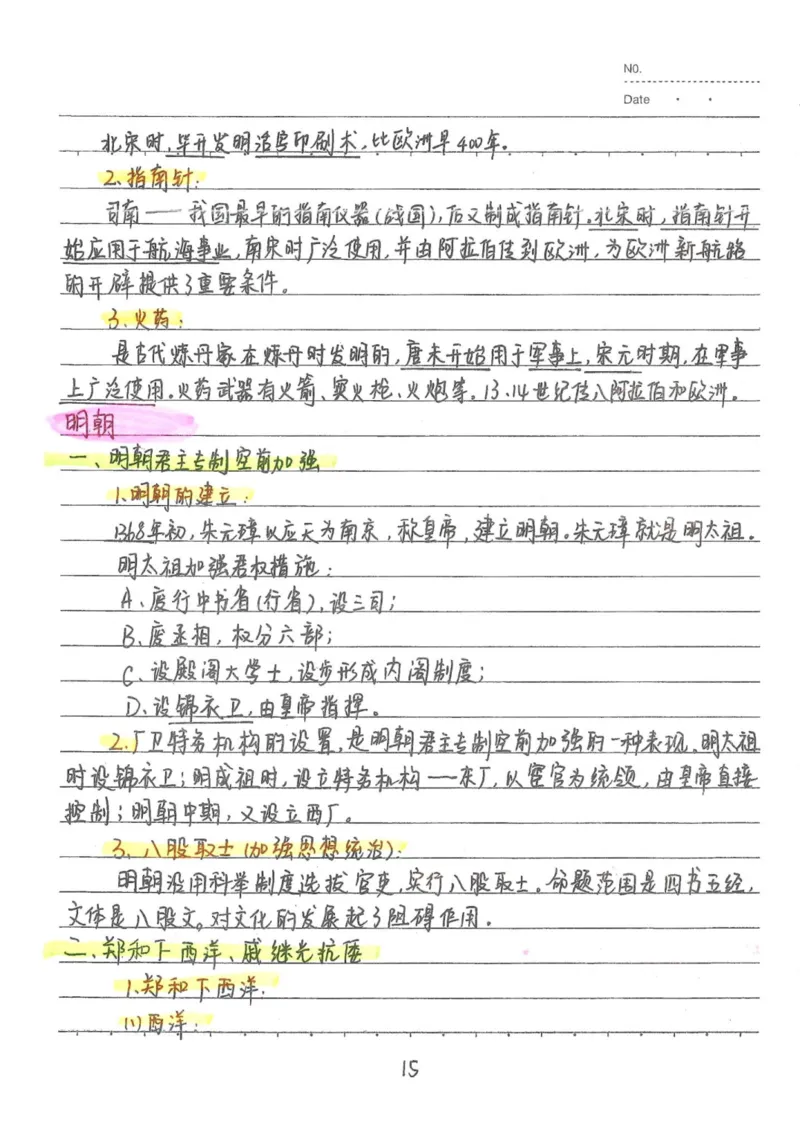 NO.
Date
北宋时,毕开发明活字印刷术,比欧洲早400年。
2.指南针:
司南——我国最早的指南仪器(战国),后又制成指南针。北宋时,指南针开
始应用于航海事业,南宋时广泛使用,并由阿拉伯传到欧洲,为欧洲新航路
的开辟提供了重要条件。
3.火药:
是古代炼丹家在炼丹时发明的,唐末开始用于军事上,宋元时期,在军事
上广泛使用。火药武器有火箭、突火枪、火炮等。13、14世纪传入阿拉伯和欧洲。
明朝
一、明朝君主专制空前加强
1.明朝的建立:
1368年初,朱元璋以应天为南京,称皇帝,建立明朝。朱元璋就是明太祖。
明太祖加强君权措施:
A、废行中书省(行省),设三司;
B、废丞相,权分六部;
C、设殿阁大学士,设步形成内阁制度;
D、设锦衣卫,由皇帝指挥。
2.厂卫特务机构的设置,是明朝君主专制空前加强的一种表现。明太祖
时设锦衣卫;明成祖时,设立特务机构——东厂,以宦官为统领,由皇帝直接
控制;明朝中期,又设立西厂。
3、八股取士(加强思想统治):
明朝沿用科举制度选拔官吏,实行八股取士。命题范围是四书五经,
文体是八股文。对文化的发展起了阻碍作用。
二、郑和下西洋、戚继光抗倭
1.郑和下西洋:
(1)西洋:
15